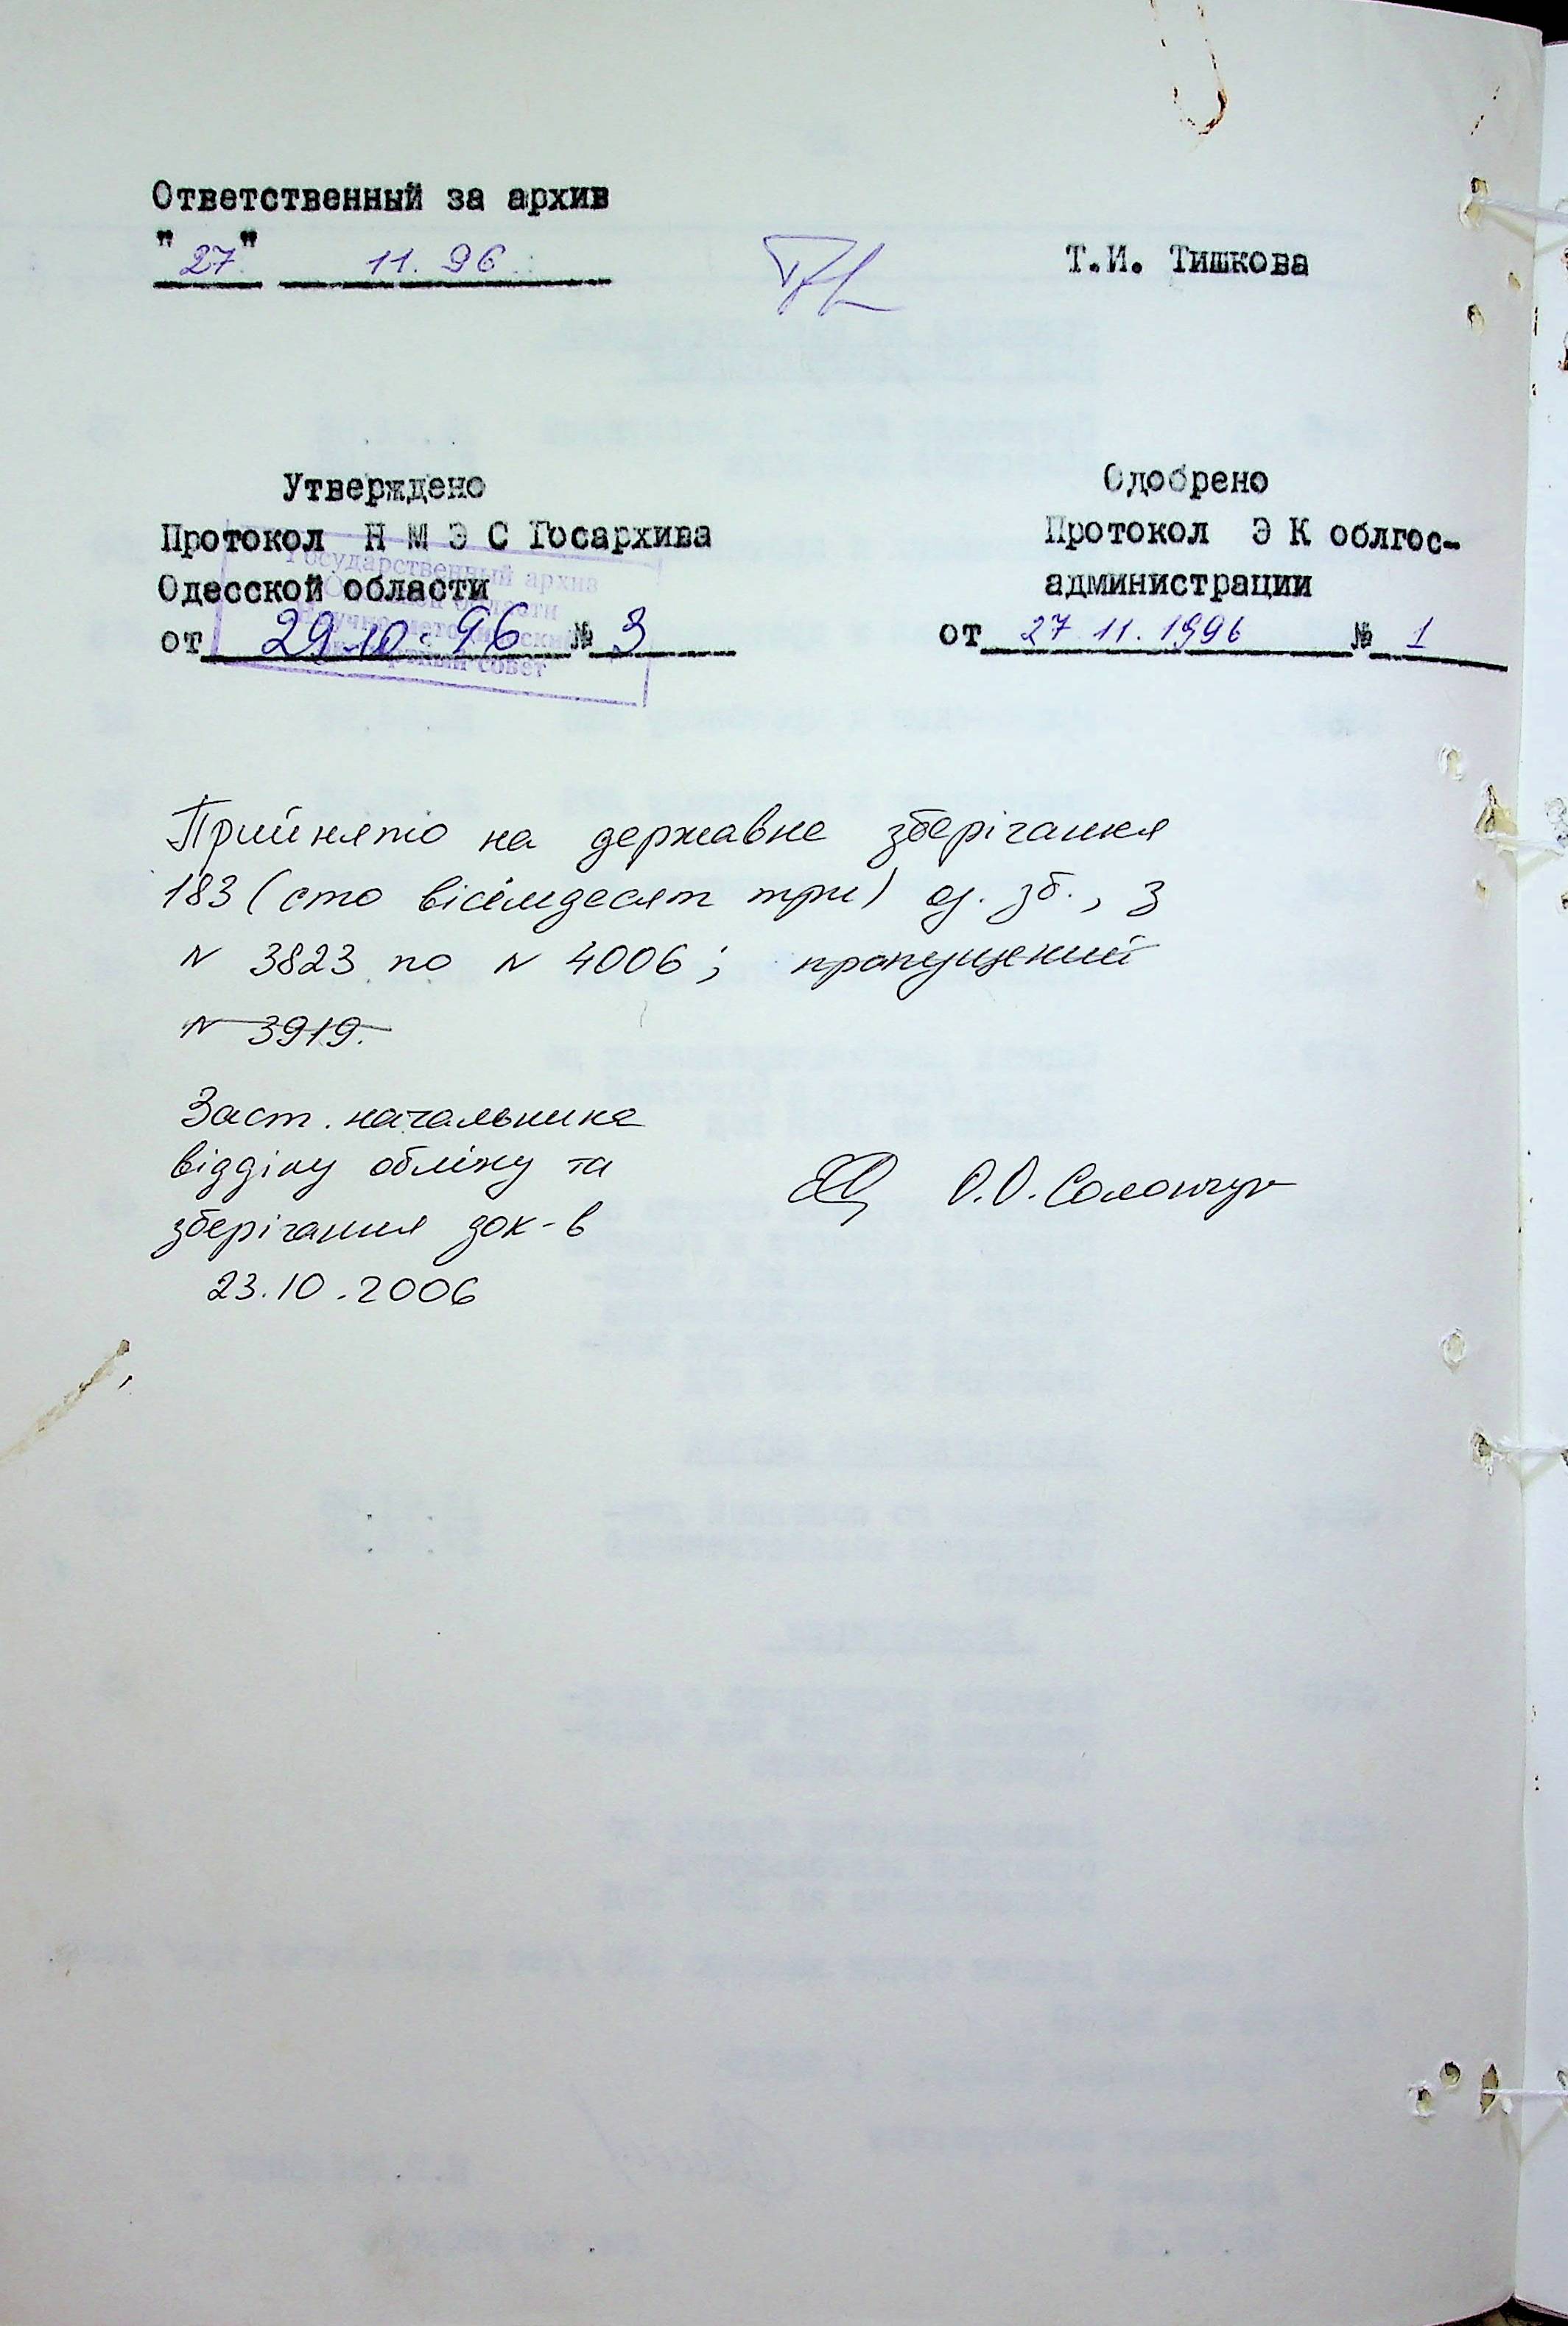 Ответственный за архив
"27" 11. 96
Т.И. Тишкова
Утверждено
Протокол Н М Э С Госархива
Одесской области
от 29.10.96 № 3
Государственный архив
совет
Одобрено
Протокол Э К облгос-
администрации
от 27 11. 1996 № 1
Прийнято на державне зберігання
183 (сто вісімдесят три) од. зб., з
N 3823 по N 4006; пропущений
N 3919.
Заст. начальника
відділу обліку та
зберігання док-в
О.О.
23.10.2006